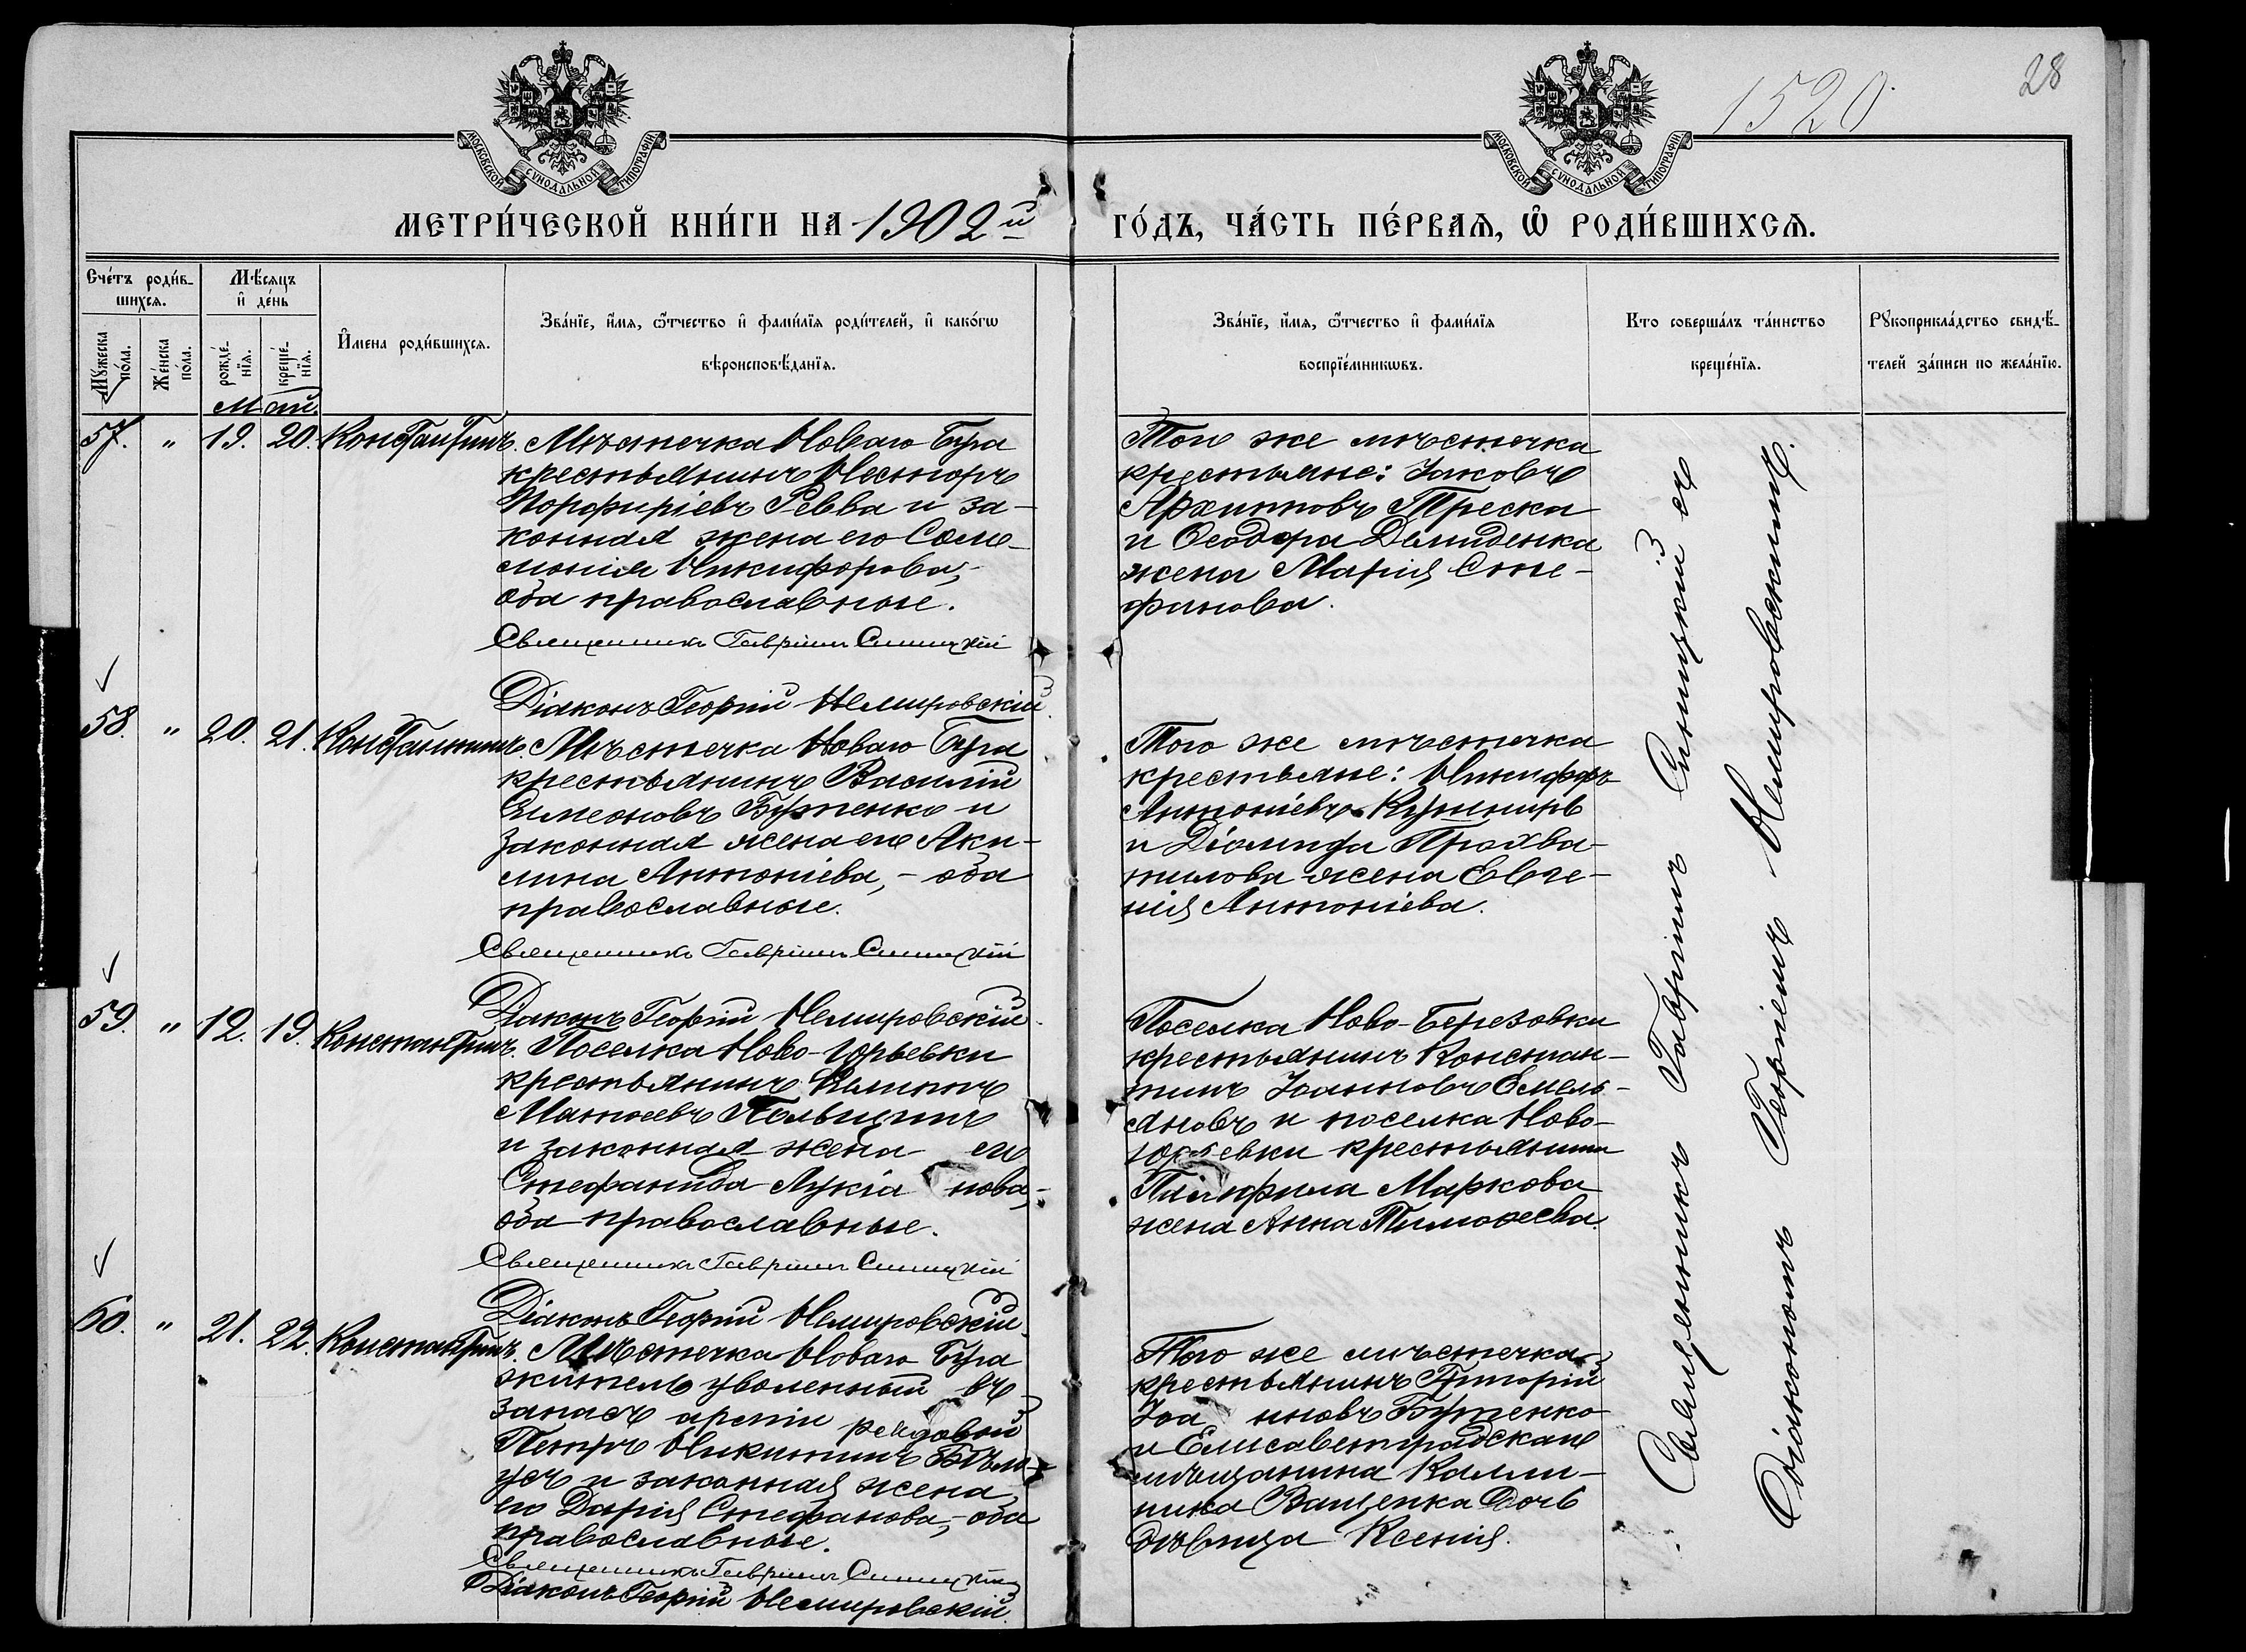 1520.
28
МОСКОВСКОЙ СѴНОДАЛЬНОЙ ТИПОГРАФІИ
МОСКОВСКОЙ СѴНОДАЛЬНОЙ ТИПОГРАФІИ
МЕТРИ́ЧЕСКОЙ КНИ́ГИ НА 1902й
ГО́ДЪ, ЧА́СТЬ ПЕ́РВАѦ, Ѡ҆ РОДИ́ВШИХСѦ.
Сче́тъ роди́в-
шихсѧ.
Мꙋ́жеска по́ла.
Же́нска по́ла.
Мѣ́сѧцъ
и҆ де́нь
рожде́-
нїѧ.
креще́-
нїѧ.
И҆мена роди́вшихсѧ.
Зва́нїе, и҆́мѧ, ѻ҆́тчество и҆ фами́лїѧ роди́телей, и҆ како́гѡ
вѣроисповѣ́данїѧ.
Зва́нїе, и҆́мѧ, ѻ҆́тчество и҆ фами́лїѧ
воспрїе́мникѡвъ.
Кто соверша́лъ та́инство
креще́нїѧ.
Рꙋкоприкла́дство свидѣ́-
телей за́писи по жела́нїю.
Май.
57. " 19. 20. Константинъ.
Мѣстечка Новаго Буга
крестьянинъ Несторъ
Порфиріевъ Ревва и за-
конная жена его Соло-
монія Никифорова,-
оба православные.
Священникъ Гавріилъ Синицкій
Діаконъ Георгій Немировскій.
Того же мѣстечка
крестьяне: Іаковъ
Архиповъ Треска
и Ѳеодора Демиденка
жена Марія Сте-
фанова.
58. " 20. 21. Константинъ.
Мѣстечка Новаго Буга
крестьянинъ Василій
Симеоновъ Бутенко и
законная жена его Аки-
лина Антоніева,- оба
православные.
Священникъ Гавріилъ Синицкій
Діаконъ Георгій Немировскій.
Того же мѣстечка
крестьяне: Никифоръ
Антоніевъ Кушниръ
и Діомида Прохва-
тилова жена Евге-
нія Антоніева.
59. " 12. 19. Константинъ.
Поселка Ново-Юрьевки
крестьянинъ Филиппъ
Матѳеевъ
и законная жена его
Стефанида Лукіанова,-
оба православные.
Священникъ Гавріилъ Синицкій
Діаконъ Георгій Немировскій.
Поселка Ново-Березовки
крестьянинъ Констан-
тинъ Іоанновъ Емель-
яновъ и поселка Ново-
Юрьевки крестьянина
Памфила Маркова
жена Анна Тимоѳеева.
60. " 21. 22. Константинъ.
Мѣстечка Новаго Буга
житель уволенный въ
запасъ арміи рядовой
Петръ Никитинъ Бѣло-
усъ и законная жена
его Дарія Стефанова,- оба
православные.
Священникъ Гавріилъ Синицкій
Діаконъ Георгій Немировскій.
Того же мѣстечка
крестьянинъ Григорій
Іоанновъ Бутенко
и Елисаветградскаго
мѣщанина Калли-
ника Ващенка дочь
дѣвица Ксенія.
Священникъ Гавріилъ Синицкій съ
Діакономъ Георгіемъ Немировскимъ.